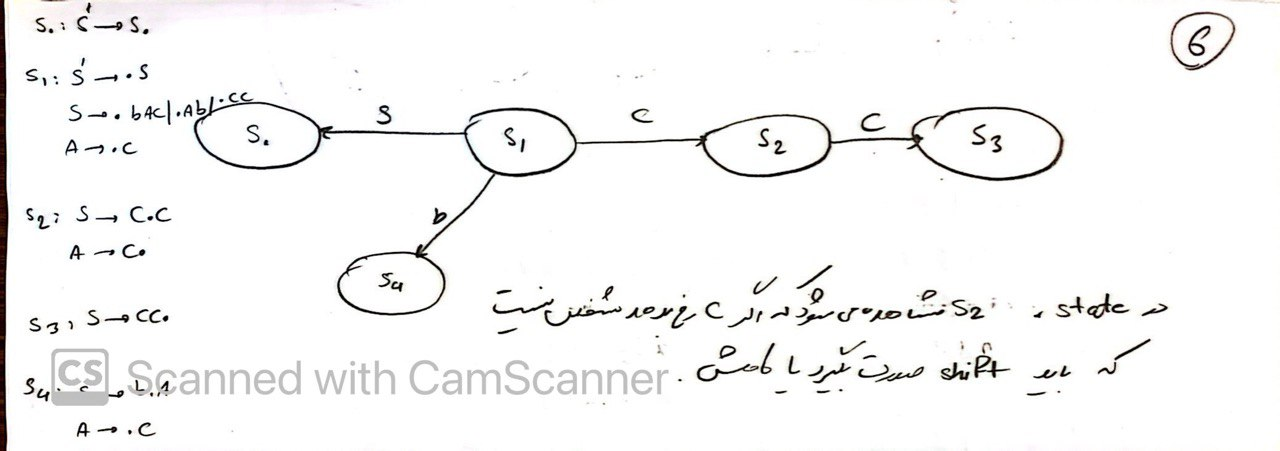 6
S. : S' → S.
S1 : S' → .S
S → . bAC|.Ab|.CC
A → .C
S2 : S → C.C
A → C.
S3 , S → CC.
S4 : → b.A
A → .C
S.
S
S1
C
S2
C
S3
b
S4
در state S2 مشاهده می شود که اگر C رخ دهد مشخص نیست
که باید shift صورت بگیرد یا کاهش .
CS Scanned with CamScanner